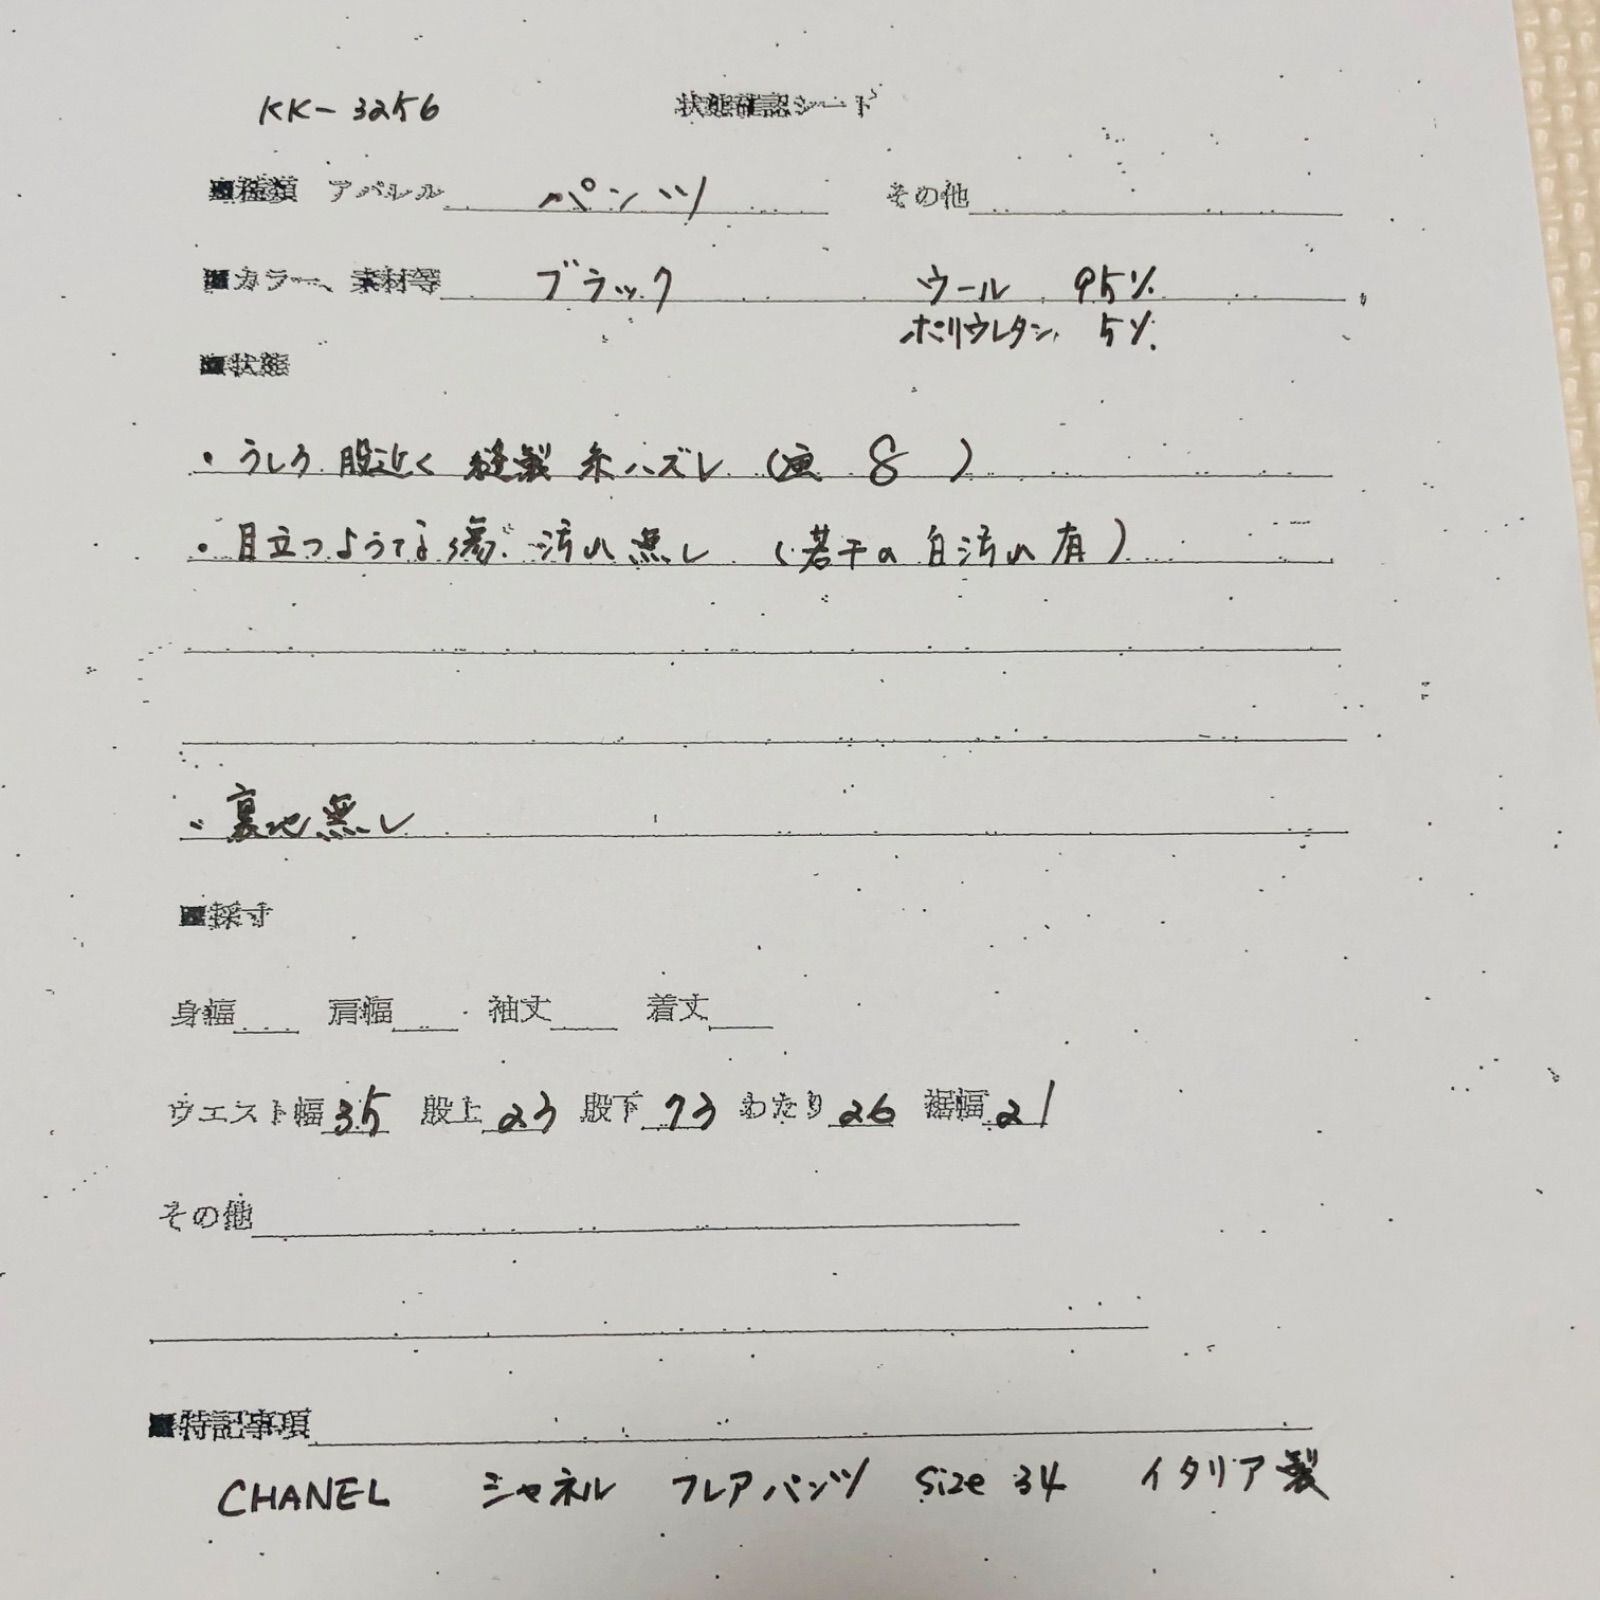 KK-3256 状態確認シート
■種類 アパレル パンツ その他
■カラー、素材等 ブラック ウール 95%
ポリウレタン 5%
■状態
・うしろ 股近く 縫製 糸ハズレ (画 8 )
・目立つような傷 汚れ 無し (若干の白汚れ有)
・裏地無し
■採寸
身幅 肩幅 袖丈 着丈
ウエスト幅 35 股上 23 股下 73 わたり 26 裾幅 21
その他
■特記事項
CHANEL シャネル フレアパンツ size 34 イタリア製